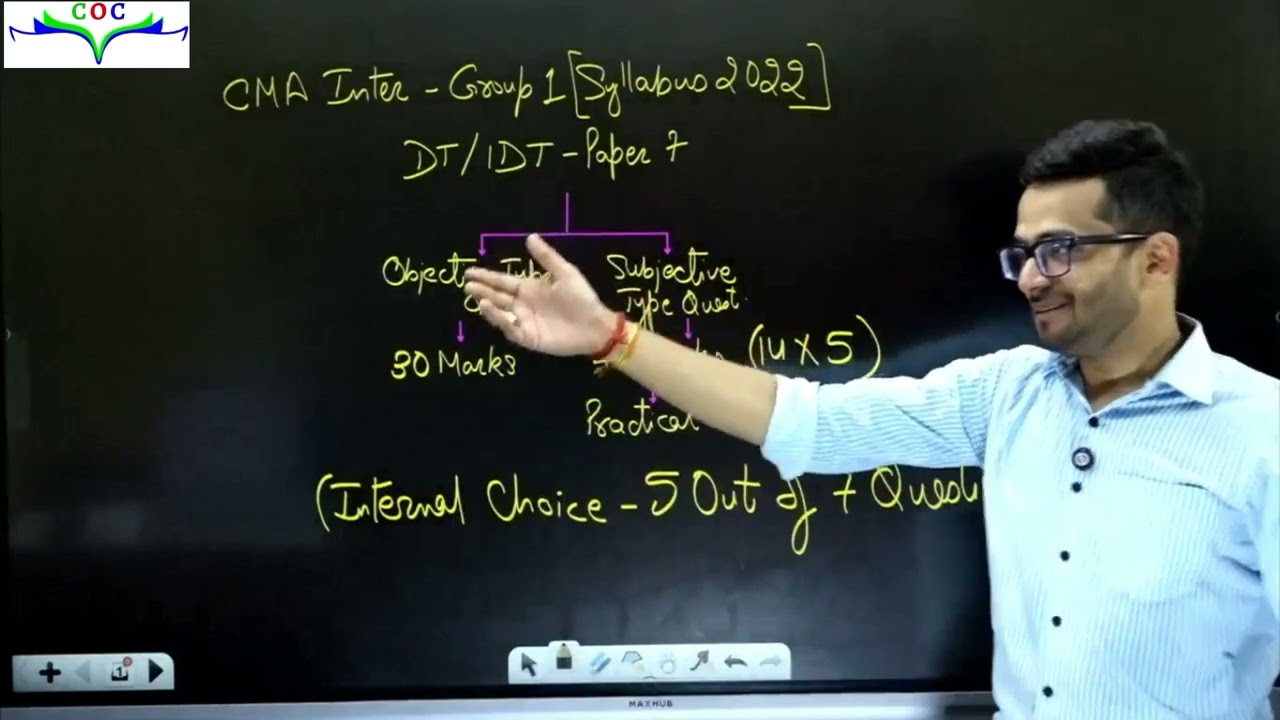 COC
CMA Inter - Group 1 [Syllabus 2022]
DT/IDT - Paper 7
Subjective
Type Quest.
30 Marks
(14 X 5)
Practical
(Internal Choice - 5 Out of 7
1
MAXHUB